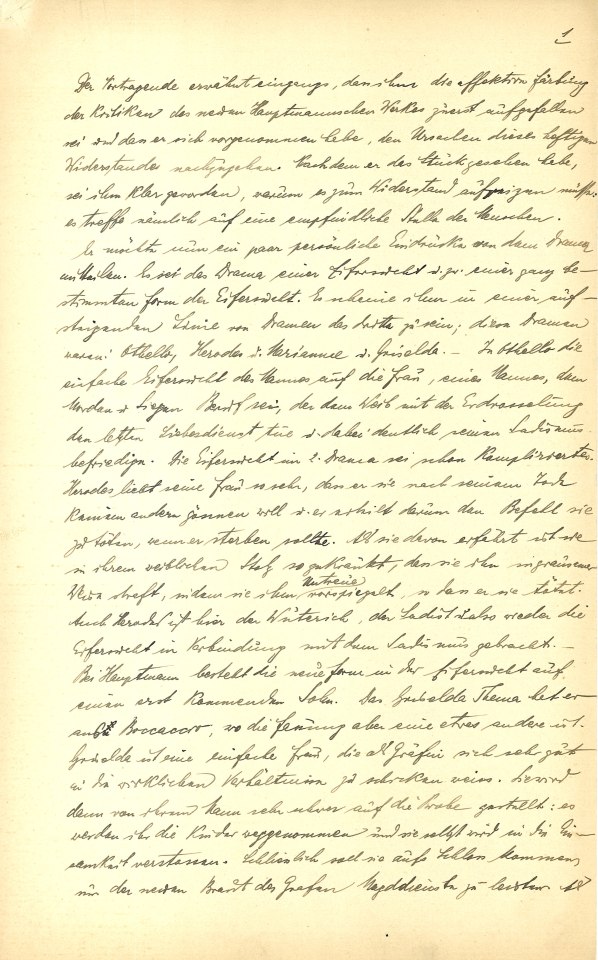 1
Der Vortragende erwähnt eingangs, dass ihm die affektive Färbung
der Kritiken des neuen Hauptmannschen Werkes zuerst aufgefallen
sei und dass er sich vorgenommen habe, den Ursachen dieses heftigen
Widerstandes nachzugehen. Nachdem er das Stück gesehen habe,
sei ihm klar geworden, warum es zum Widerstand aufreizen müsse:
es treffe nämlich auf eine empfindliche Stelle der Menschen.
Er möchte nun ein paar persönliche Eindrücke von dem Drama
mitteilen. Es sei das Drama einer Eifersucht u. zw. einer ganz be-
stimmten Form der Eifersucht. Es scheine ihm in einer auf-
steigenden Linie von Dramen das dritte zu sein; diese Dramen
waren: Othello, Herodes u. Mariamne u. Griselda. – In Othello die
einfache Eifersucht des Mannes auf die Frau, eines Mannes, dem
Morden u. Siegen Beruf sei, der dem Weib mit der Erdrosselung
den letzten Liebesdienst tue u. dabei deutlich seinen Sadismus
befriedige. Die Eifersucht im 2. Drama sei schon komplizierter.
Herodes liebt seine Frau so sehr, dass er sie nach seinem Tode
keinem andern gönnen will u. er erteilt darum den Befehl sie
zu töten, wenn er sterben sollte. Als sie davon erfährt ist sie
in ihrem weiblichen Stolz so gekränkt, dass sie ihn in grausamer
Weise straft, indem sie ihm Untreue vorspiegelt, so dass er sie tötet.
Auch Herodes ist hier der Wüterich, der Sadist u. also wieder die
Eifersucht in Verbindung mit dem Sadismus gebracht. –
Bei Hauptmann besteht die neue Form in der Eifersucht auf
einen erst kommenden Sohn. Das Griselda Thema hat er
aus Boccaccio, wo die Fassung aber eine etwas andere ist.
Griselda ist eine einfache Frau, die als Gräfin sich sehr gut
in die wirklichen Verhältnisse zu schicken weiss. Sie wird
dann von ihrem Mann sehr schwer auf die Probe gestellt: es
werden ihr die Kinder weggenommen und sie selbst wird in die Ein-
samkeit verstossen. Schliesslich soll sie aufs Schloss kommen,
um der neuen Braut des Grafen Magddienste zu leisten. Als